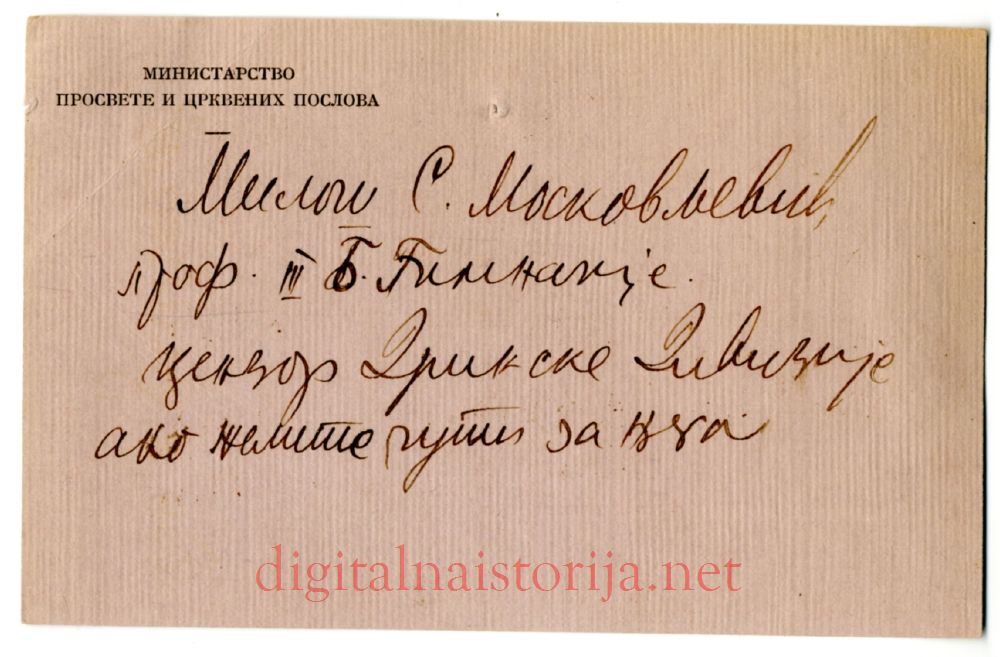 МИНИСТАРСТВО
ПРОСВЕТЕ И ЦРКВЕНИХ ПОСЛОВА
Милош С. Московљевић,
проф. III Б. Гимназије.
цензор Дринске Дивизије
ако желите чути за њга
digitalnaistorija.net